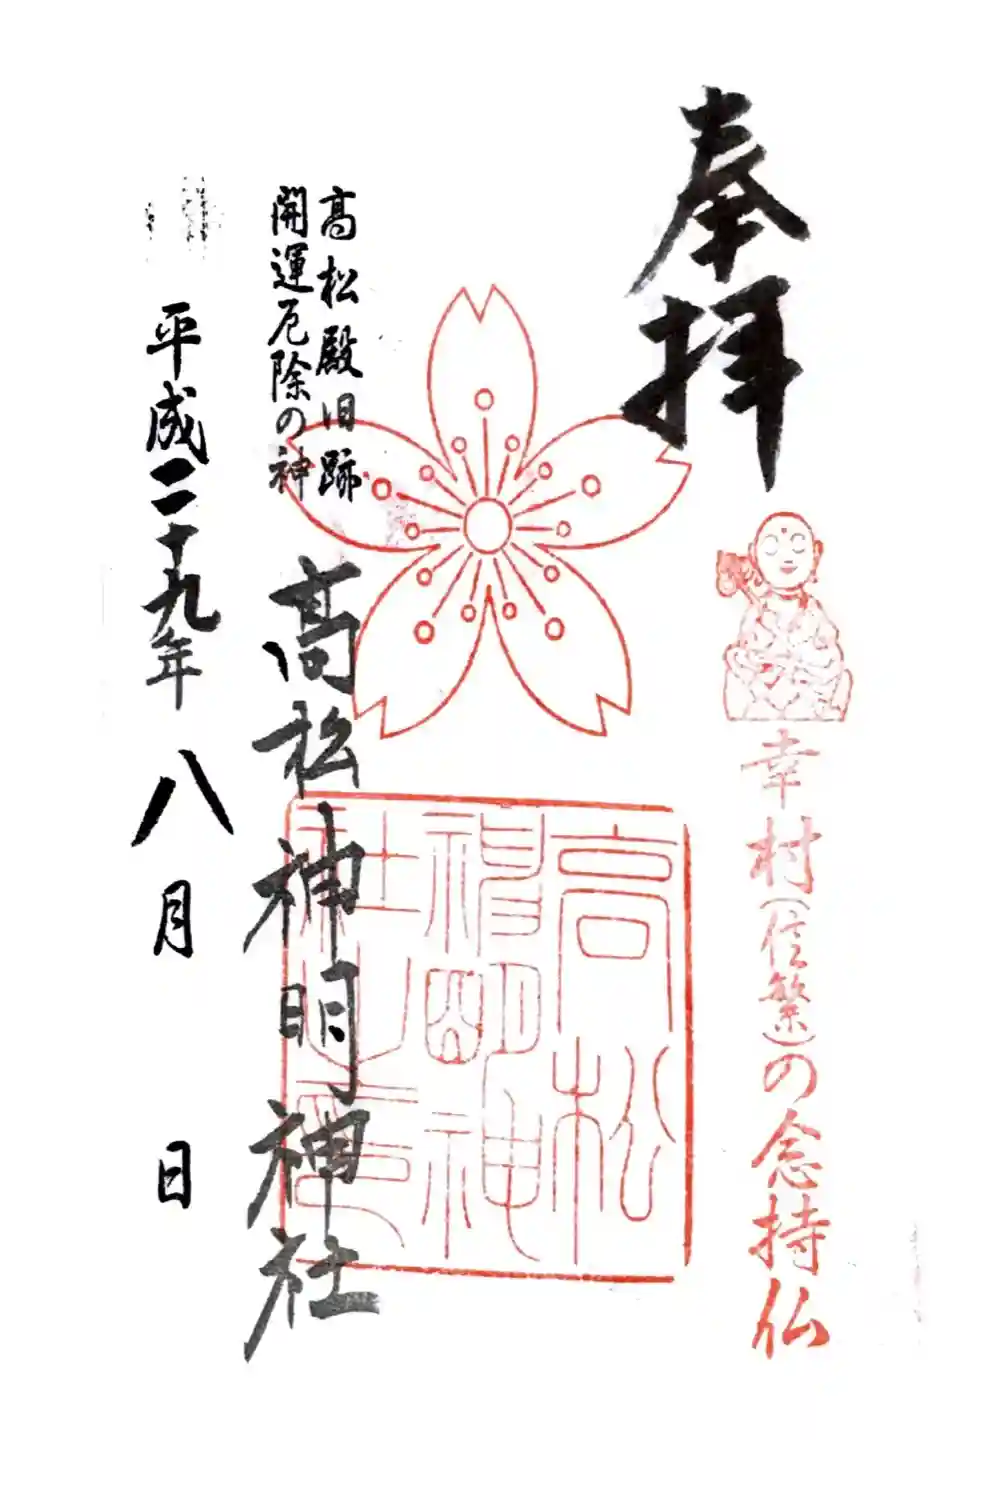 奉拝
幸村(信繁)の念持仏
高松神明神社
高松殿旧跡
開運厄除の神
高松神明神社
平成二十九年 八月 日